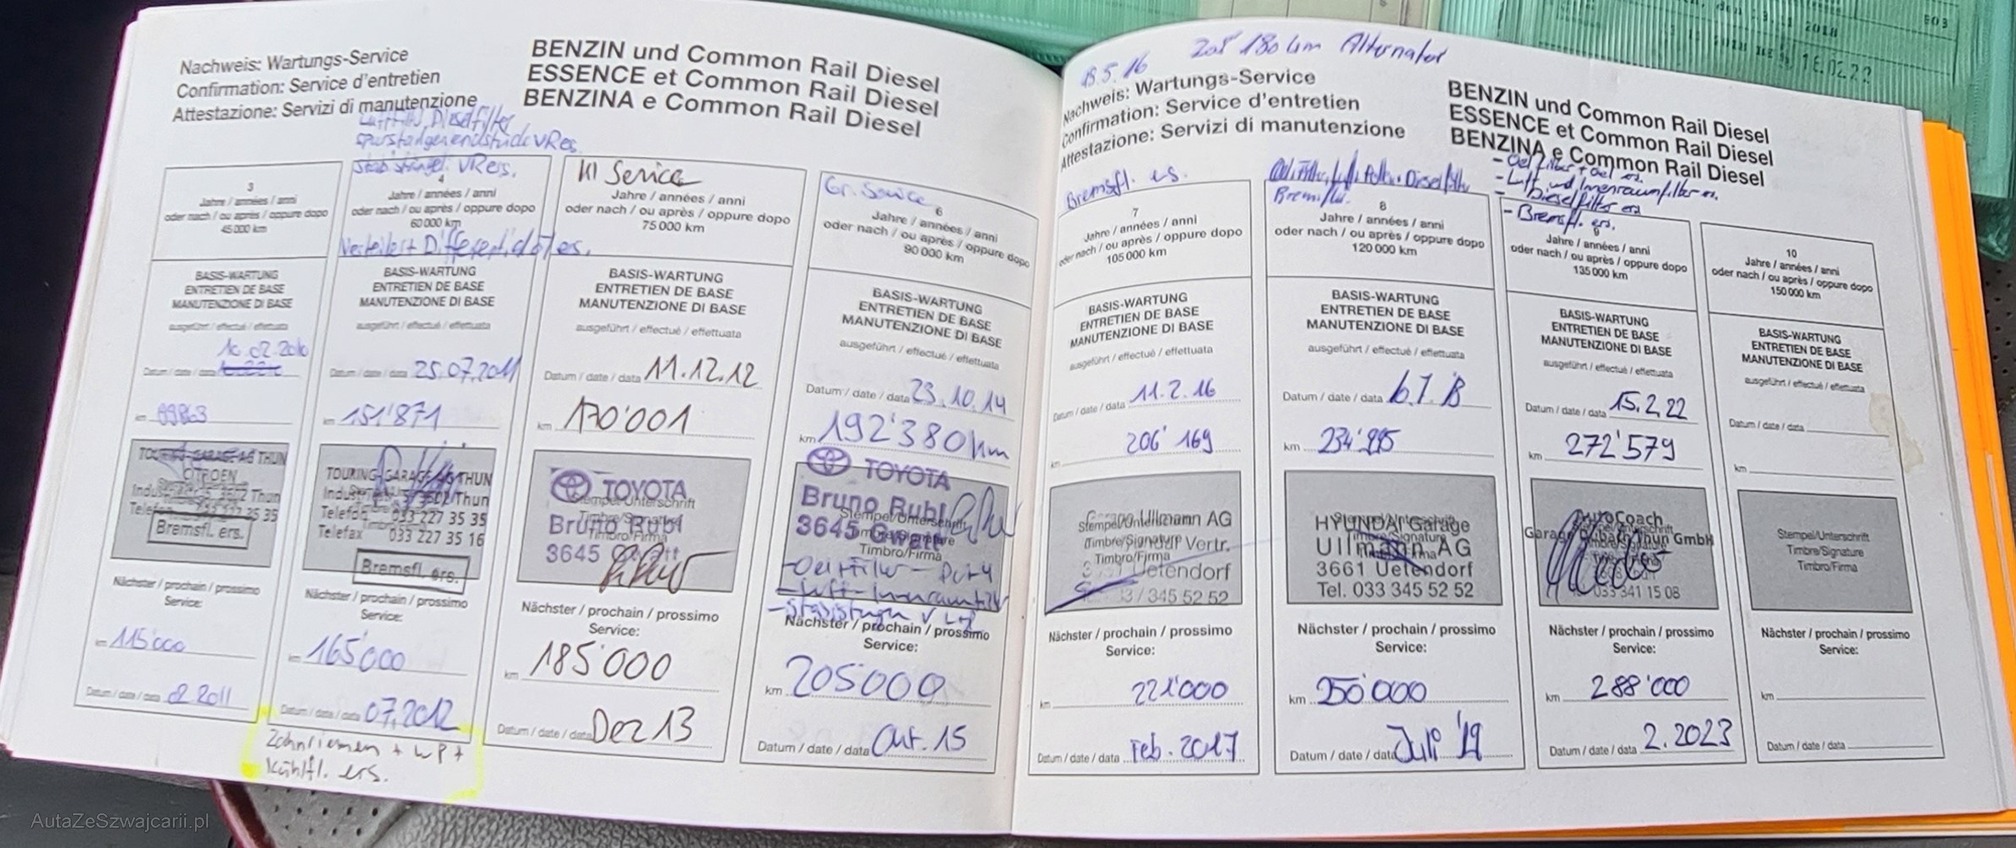 Nachweis: Wartungs-Service
Confirmation: Service d'entretien
Attestazione: Servizi di manutenzione
BENZIN und Common Rail Diesel
ESSENCE et Common Rail Diesel
BENZINA e Common Rail Diesel
Dieselfilter
VRe
3
Jahre / années / anni
oder nach / ou après / oppure dopo
45000 km
BASIS-WARTUNG
ENTRETIEN DE BASE
MANUTENZIONE DI BASE
ausgeführt / effectué / effettuata
16.02.2010
Datum / date / data
km
TOURING-GARAGE AG THUN
CITROEN
3602 Thun
033 227 35 35
Bremsfl. ers.
Nächster / prochain / prossimo
Service:
km 115'000
Datum / date / data 02 2011
VRe
4
Jahre / années / anni
oder nach / ou après / oppure dopo
60000 km
ers.
BASIS-WARTUNG
ENTRETIEN DE BASE
MANUTENZIONE DI BASE
ausgeführt / effectué / effettuata
Datum / date / data 25.07.2011
km 151'871
TOURING-GARAGE AG THUN
3602 Thun
Telefon 033 227 35 35
Telefax 033 227 35 16
Bremsfl. ers.
Nächster / prochain / prossimo
Service:
km 165'000
Datum / date / data 07.2012
Zahnriemen + WP +
Kühlfl. ers.
Kl Service
Jahre / années / anni
oder nach / ou après / oppure dopo
75000 km
BASIS-WARTUNG
ENTRETIEN DE BASE
MANUTENZIONE DI BASE
ausgeführt / effectué / effettuata
Datum / date / data 11.12.12
km 170'001
TOYOTA
Stempel/Unterschrift
Bruno Rubi
Timbro/Firma
3645 Gwatt
Nächster / prochain / prossimo
Service:
km 185'000
Datum / date / data Dez 13
Gr. Service
6
Jahre / années / anni
oder nach / ou après / oppure dopo
90000 km
BASIS-WARTUNG
ENTRETIEN DE BASE
MANUTENZIONE DI BASE
ausgeführt / effectué / effettuata
Datum / date / data 23.10.14
km 192'380km
TOYOTA
Bruno Rubi
Stempel/Unterschrift
3645 Gwatt
Timbro/Firma
Nächster / prochain / prossimo
Service:
km 205'000
Datum / date / data Okt. 15
180 km Alternator
Nachweis: Wartungs-Service
Confirmation: Service d'entretien
Attestazione: Servizi di manutenzione
BENZIN und Common Rail Diesel
ESSENCE et Common Rail Diesel
BENZINA e Common Rail Diesel
Bremsfl. ers.
7
Jahre / années / anni
oder nach / ou après / oppure dopo
105000 km
BASIS-WARTUNG
ENTRETIEN DE BASE
MANUTENZIONE DI BASE
ausgeführt / effectué / effettuata
Datum / date / data 11.2.16
km 206'169
Stempel/Unterschrift
Ullmann AG
Timbre/Signature
Timbro/Firma
Uetendorf
345 52 52
Nächster / prochain / prossimo
Service:
km 221'000
Datum / date / data Feb. 2017
Dieselfilter
Bremsfl.
8
Jahre / années / anni
oder nach / ou après / oppure dopo
120000 km
BASIS-WARTUNG
ENTRETIEN DE BASE
MANUTENZIONE DI BASE
ausgeführt / effectué / effettuata
Datum / date / data
km
HYUNDAI Garage
Ullmann AG
3661 Uetendorf
Tel. 033 345 52 52
Nächster / prochain / prossimo
Service:
km 250'000
Datum / date / data Juli '19
- Oel Filter + Oel ers.
- Luft und Innenraumfilter ers.
- Dieselfilter ers
- Bremsfl. ers.
9
Jahre / années / anni
oder nach / ou après / oppure dopo
135000 km
BASIS-WARTUNG
ENTRETIEN DE BASE
MANUTENZIONE DI BASE
ausgeführt / effectué / effettuata
Datum / date / data 15.2.22
km 272'579
AutoCoach
Thun GmbH
033 341 15 08
Nächster / prochain / prossimo
Service:
km 288'000
Datum / date / data 2.2023
10
Jahre / années / anni
oder nach / ou après / oppure dopo
150000 km
BASIS-WARTUNG
ENTRETIEN DE BASE
MANUTENZIONE DI BASE
ausgeführt / effectué / effettuata
Datum / date / data
km
Stempel/Unterschrift
Timbre/Signature
Timbro/Firma
Nächster / prochain / prossimo
Service:
km
Datum / date / data
2018
B03
16.02.22
AutaZeSzwajcarii.pl